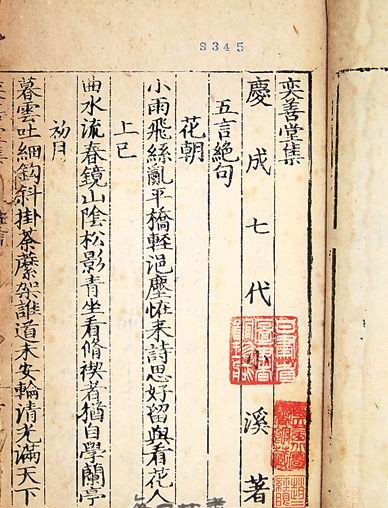 S345
奕善堂集
慶成七代小溪著
五言絶句
花朝
小雨飛絲亂平橋輕浥塵恠来詩思好留與看花人
上巳
曲水流春鏡山陰松影青坐看脩禊者猶自學蘭亭
初月
暮雲吐細鈎斜掛荼䕷架誰道未安輪清光滿天下